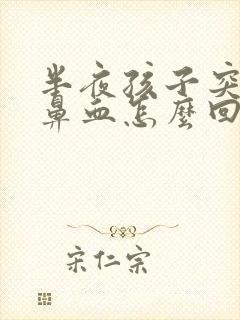 半夜孩子突
鼻血怎麼回
宋仁宗